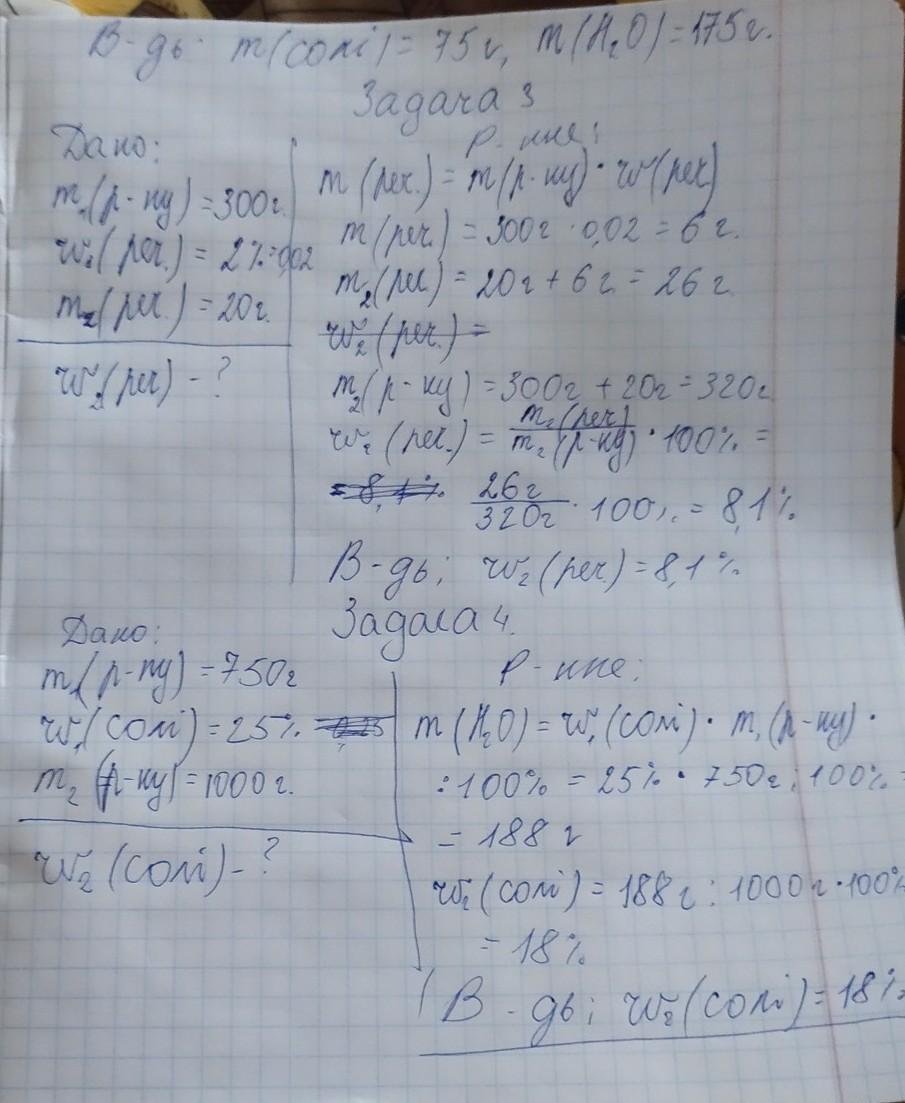 В-дь: m(солі) = 75г, m(H₂O) = 175г.
Задача 3
Дано:
m₁(р-ну) = 300г.
w₁(реч.) = 2% = 0,02
m₂(реч.) = 20г.
w₂(реч) - ?
Р-ння:
m (реч.) = m(р-ну) · w(реч)
m (реч.) = 300г · 0,02 = 6 г.
m₂(реч) = 20г + 6г = 26 г.
w₂(реч.) =
m₂(р-ну) = 300г + 20г = 320г
w₂ (реч.) = m₂(реч) / m₂(р-ну) · 100% =
= 8,1% 26г / 320г · 100% = 8,1%
В-дь; w₂(реч) = 8,1%
Задача 4.
Дано:
m₁(р-ну) = 750г
w₁(солі) = 25%
m₂ (р-ну) = 1000г.
w₂(солі) - ?
Р-ння:
m(H₂O) = w₁(солі) · m₁(р-ну) ·
: 100% = 25% · 750г : 100% =
= 188 г
w₂(солі) = 188г : 1000г · 100%
= 18%
В-дь; w₂(солі) = 18%